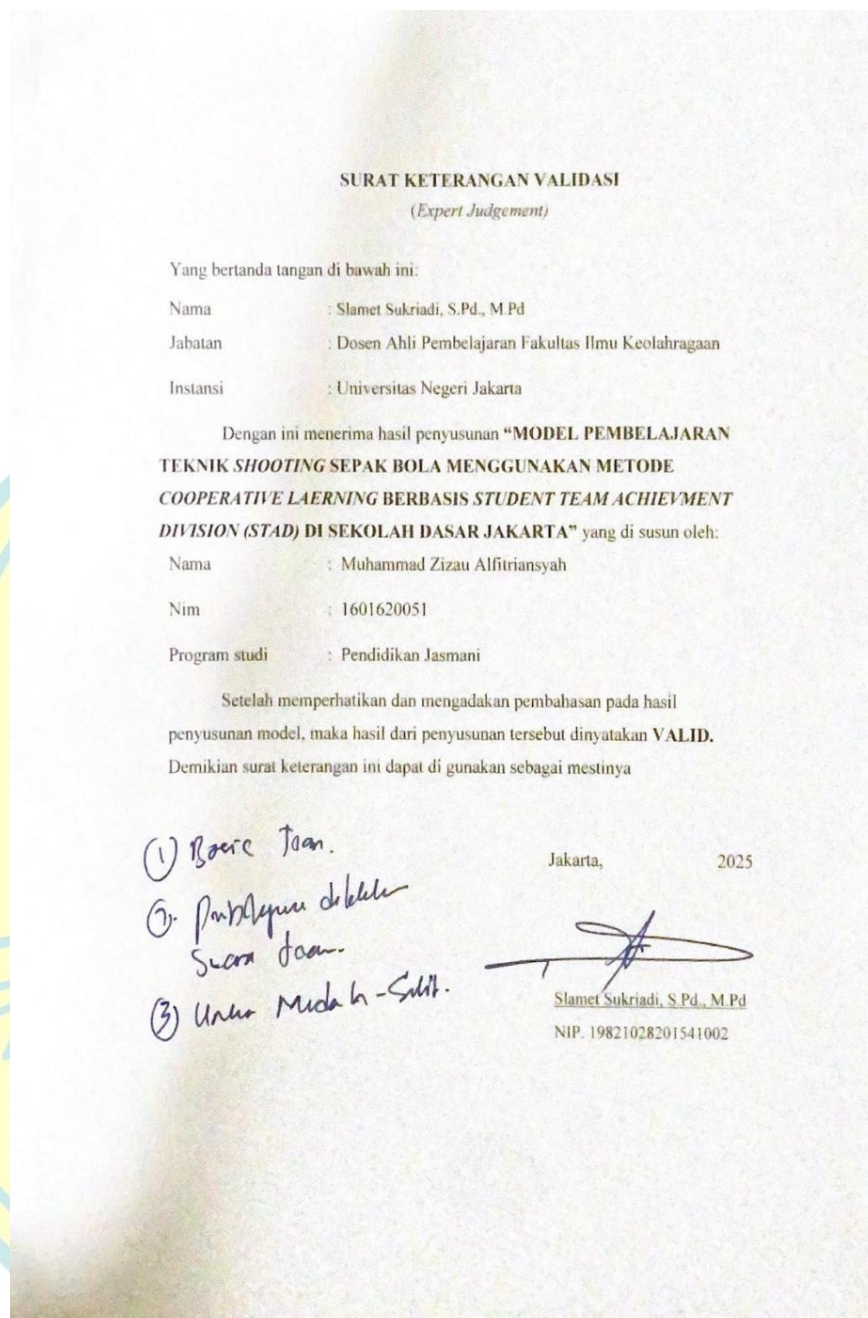 SURAT KETERANGAN VALIDASI
(Expert Judgement)
Yang bertanda tangan di bawah ini:
Nama : Slamet Sukriadi, S.Pd., M.Pd
Jabatan : Dosen Ahli Pembelajaran Fakultas Ilmu Keolahragaan
Instansi : Universitas Negeri Jakarta
Dengan ini menerima hasil penyusunan “MODEL PEMBELAJARAN
TEKNIK SHOOTING SEPAK BOLA MENGGUNAKAN METODE
COOPERATIVE LAERNING BERBASIS STUDENT TEAM ACHIEVMENT
DIVISION (STAD) DI SEKOLAH DASAR JAKARTA” yang di susun oleh:
Nama : Muhammad Zizau Alfitriansyah
Nim : 1601620051
Program studi : Pendidikan Jasmani
Setelah memperhatikan dan mengadakan pembahasan pada hasil
penyusunan model, maka hasil dari penyusunan tersebut dinyatakan VALID.
Demikian surat keterangan ini dapat di gunakan sebagai mestinya
Jakarta, 2025
(1)
(3) Mudah - Sulit.
Slamet Sukriadi, S.Pd., M.Pd
NIP. 19821028201541002